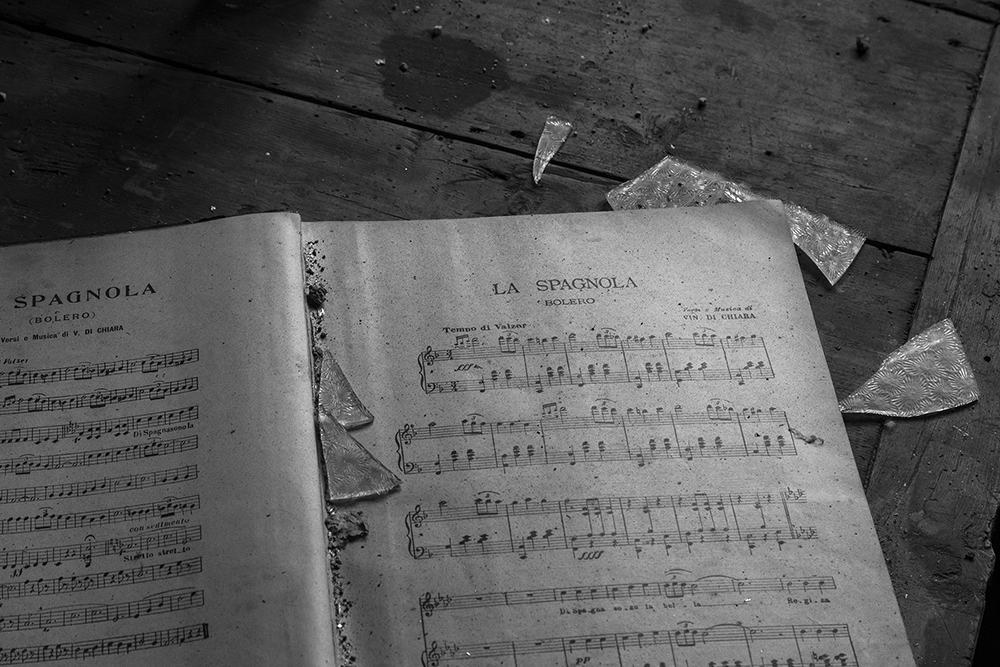 SPAGNOLA
(BOLERO)
Versi e Musica di V. DI CHIARA
Valzer
Di Spagna sono la
con sentimento
Stretto stret_to
ff
LA SPAGNOLA
BOLERO
Versi e Musica di
VIN. DI CHIARA
Tempo di Valzer
fff
ffff
Di Spa_gna so_no la bel_la
Re_gi_na
pp